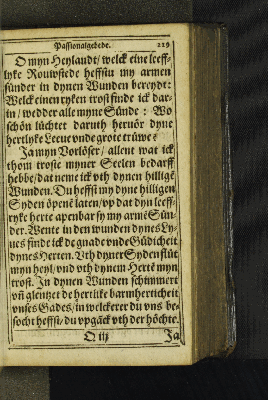 Passionalgebede. 229
O myn Heylandt/ welck eine leeff-
lyke Rouwstede heffstu my armen
sünder in dynen Wunden bereydt:
Welck einen ryken trost finde ick dar-
in/ wedder alle myne Sünde: Wo
schön lüchtet daruth hervör dyne
hertlyke Leeue vnde grote trüwe?
Ja myn Vorlöser/ allent wat ick
thom troste myner Seelen bedarff
hebbe/ dat neme ick vth dynen hilligē
Wunden. Du heffst my dyne hilligen
Syden öpenē laten/ vp dat dyn leeff-
ryke herte apenbar sy my armē Sün-
der. Wente in den wunden dynes Ly-
ues finde ick de gnade vnde Güdicheit
dynes Herten. Vth dyner Syden flüt
myn heyl/ vnd vth dynem Hertē myn
trost. In dynen Wunden schimmert
vñ glentzet de hertlike barmherticheit
vnses Gades/ in welckerer du vns be-
socht heffst/ du vpgäck vth der höchte.
Q iij Ja